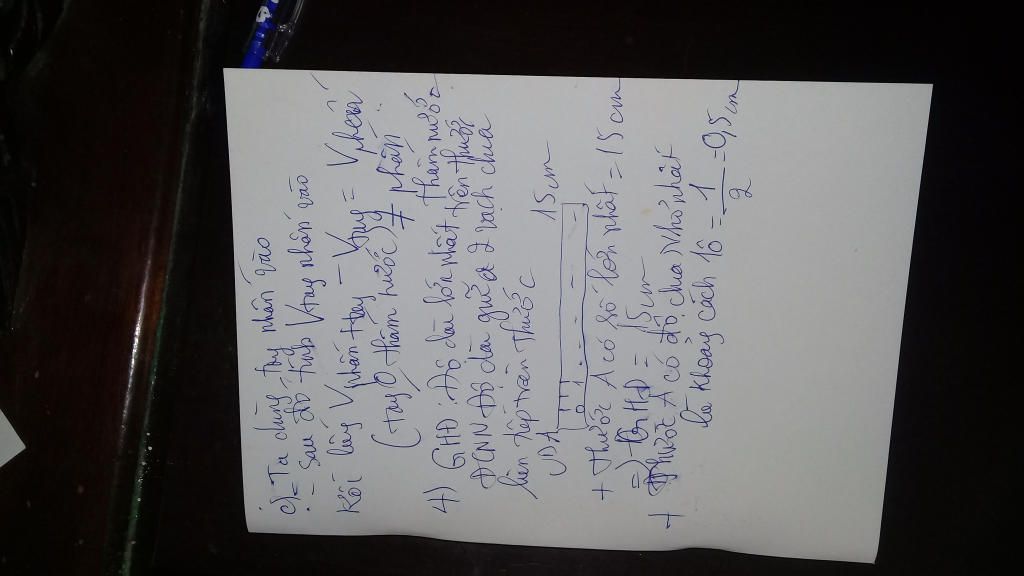 c) - Ta dùng tay nhấn vào
- Sau đó tính Vtay nhấn vào
Rồi lấy Vphấn + tay - Vtay = Vphấn
(tay 0 thấm nước) ≠ phấn
thấm nước
4) GHĐ: Độ dài lớn nhất trên thước
ĐCNN Độ dài giữa 2 vạch chia
liên tiếp trên thước
VD A
15cm
0 1
+ Thước A có số lớn nhất = 15 cm
=> GHĐ = 15cm
+ Thước A có độ chia nhỏ nhất
là khoảng cách 1ô = 1/2 = 0,5 cm